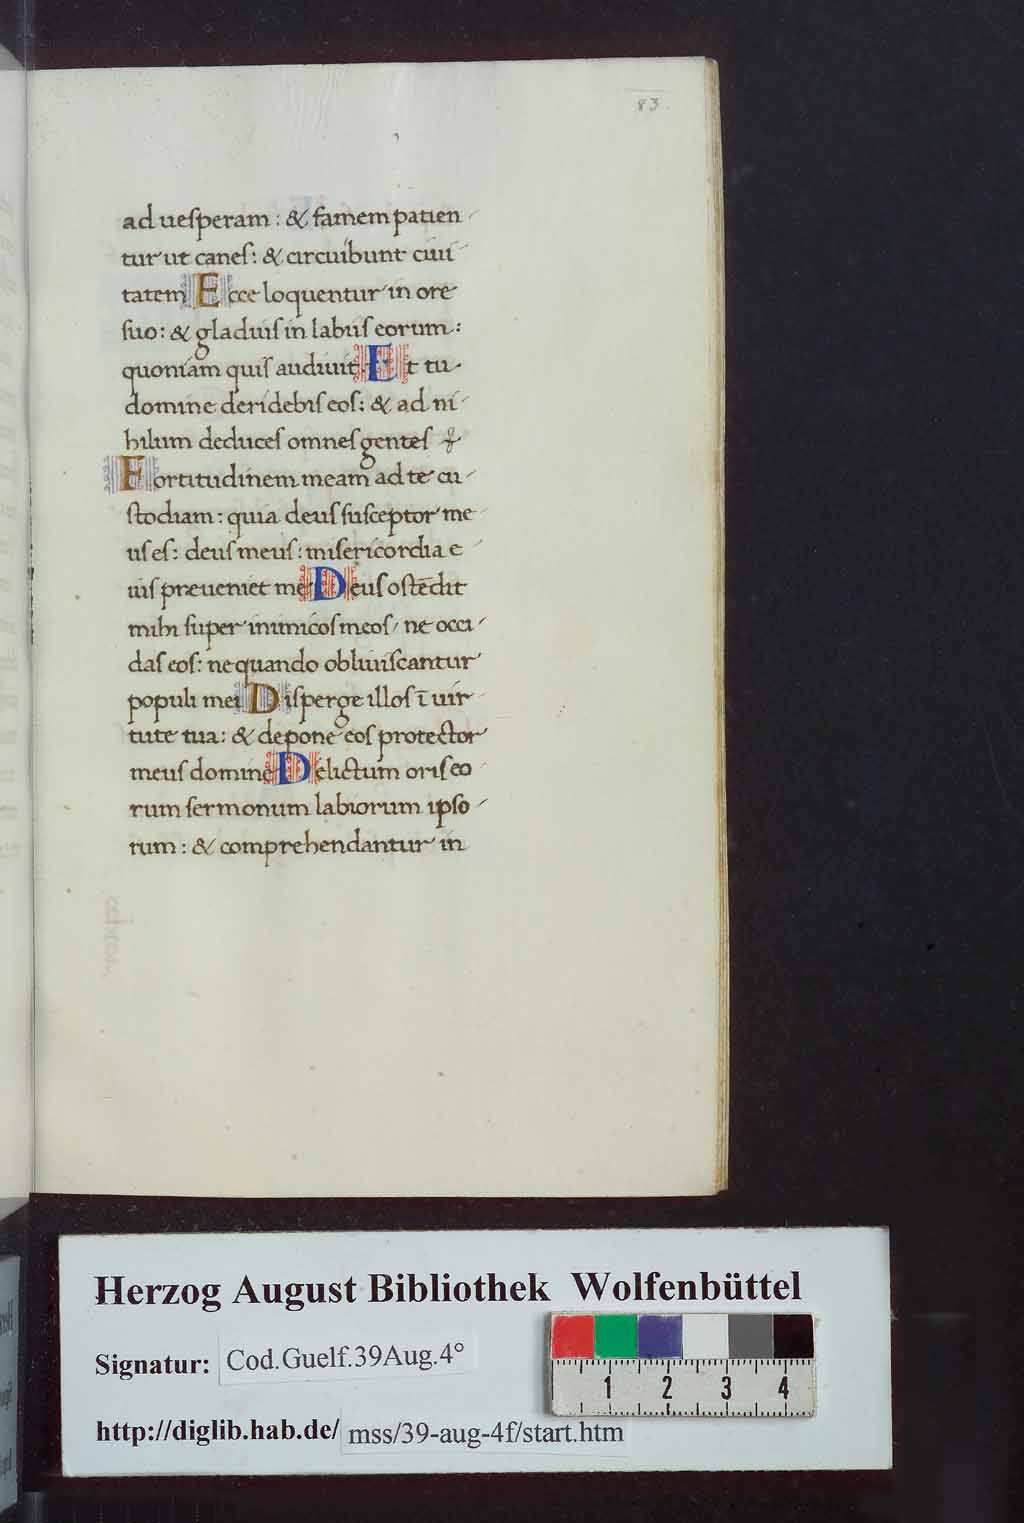 83
ad uesperam : & famem patien
tur ut canes : & circuibunt ciui
tatem Ecce loquentur in ore
suo : & gladius in labiis eorum :
quoniam quis audiuit Et tu
domine deridebis eos : & ad ni
hilum deduces omnes gentes
Fortitudinem meam ad te cu
stodiam : quia deus susceptor me
us es : deus meus : misericordia e
ius preueniet me Deus ostēdit
mihi super inimicos meos / ne occi
das eos : ne quando obliuiscantur
populi mei Disperge illos ī uir
tute tua : & depone eos protector
meus domine Delictum oris eo
rum sermonum labiorum ipso
rum : & comprehendantur in
Herzog August Bibliothek Wolfenbüttel
Signatur: Cod.Guelf.39Aug.4°
1 2 3 4
http://diglib.hab.de/ mss/39-aug-4f/start.htm